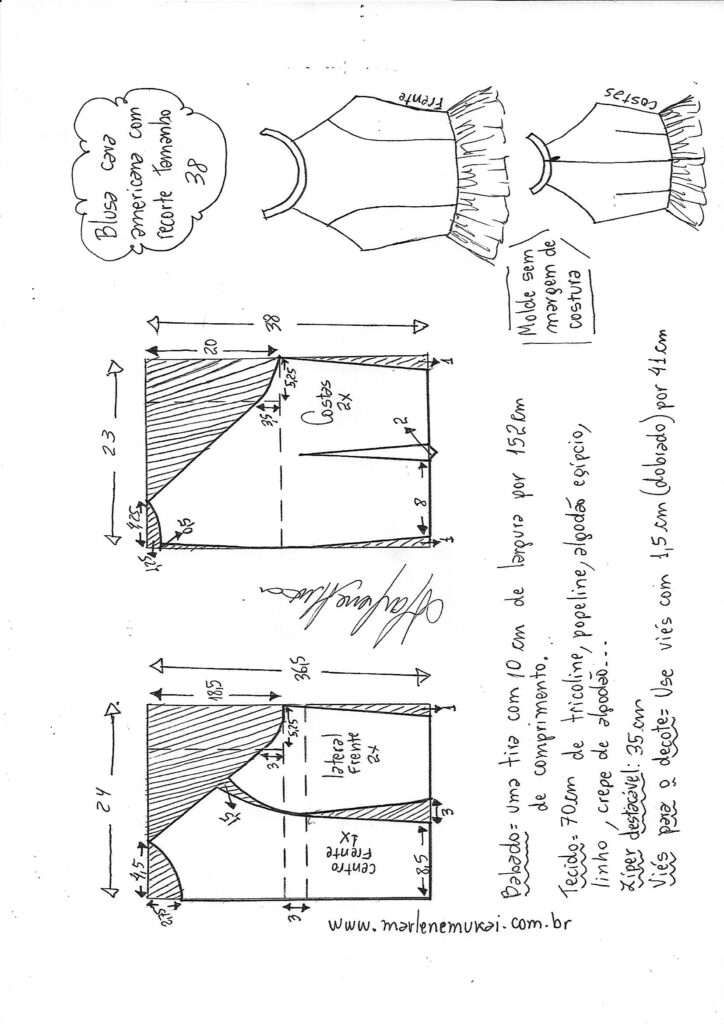 Blusa cava
americana com
recorte tamanho
38
Frente
Costas
Molde sem
margem de
costura
23
38
20
5,25
3,5
Costas
2x
4,25
1,25
0,5
2
8
1
1
24
36,5
18,5
5,25
3
lateral
Frente
2x
4,5
2,75
1,5
Centro
Frente
1x
8,5
3
3
1
Babado= uma tira com 10 cm de largura por 152cm
de comprimento.
Tecido= 70cm de tricoline, popeline, algodão egípcio,
linho, crepe de algodão...
Zíper destacável: 35cm
Viés para o decote= Use viés com 1,5 cm (dobrado) por 41cm
www.marlenemukai.com.br